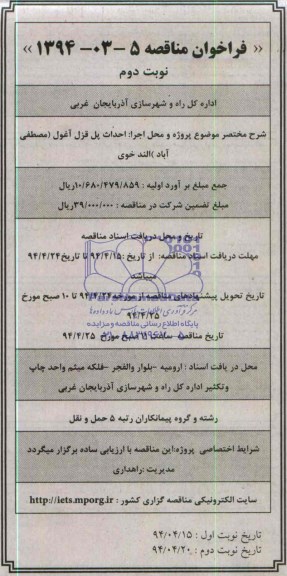 « فراخوان مناقصه ۵ -۰۳- ۱۳۹۴ »
نوبت دوم
اداره کل راه و شهرسازی آذربایجان غربی
شرح مختصر موضوع پروژه و محل اجرا: احداث پل قزل آغول (مصطفی
آباد )الند خوی
جمع مبلغ بر آورد اولیه : ۱۰/۶۸۰/۴۷۹/۸۵۹ریال
مبلغ تضمین شرکت در مناقصه : ۳۹/۰۰۰/۰۰۰ریال
تاریخ و محل دریافت اسناد مناقصه
مهلت دریافت اسناد مناقصه: از تاریخ :۹۴/۴/۱۵ تا تاریخ۹۴/۴/۲۴
میباشد
تاریخ تحویل پیشنهادهای مناقصه از مورخه ۹۴/۴/۲۴ تا ۱۰ صبح مورخ
۹۴/۴/۲۵
پایگاه اطلاع رسانی مناقصه و مزایده
تاریخ مناقصه: ساعت ۱۱ صبح مورخ ۹۴/۴/۲۵
محل در یافت اسناد : ارومیه -بلوار والفجر -فلکه میثم واحد چاپ
وتکثیر اداره کل راه و شهرسازی آذربایجان غربی
رشته و گروه پیمانکاران رتبه ۵ حمل و نقل
شرایط اختصاصی پروژه:این مناقصه با ارزیابی ساده برگزار میگردد
مدیریت :راهداری
سایت الکترونیکی مناقصه گزاری کشور : http://iets.mporg.ir
تاریخ نوبت اول : ۹۴/۰۴/۱۵
تاریخ نوبت دوم : ۹۴/۰۴/۲۰